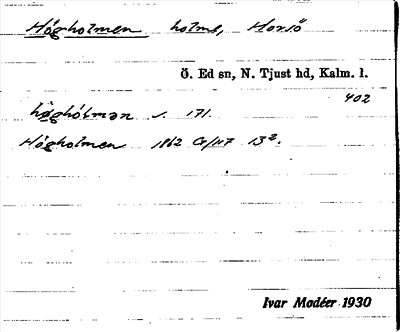 Högholmen holme, Horsö
Ö. Ed sn, N. Tjust hd, Kalm. l.
402
högholmən s. 171.
Högholmen 1862 13².
Ivar Modéer 1930